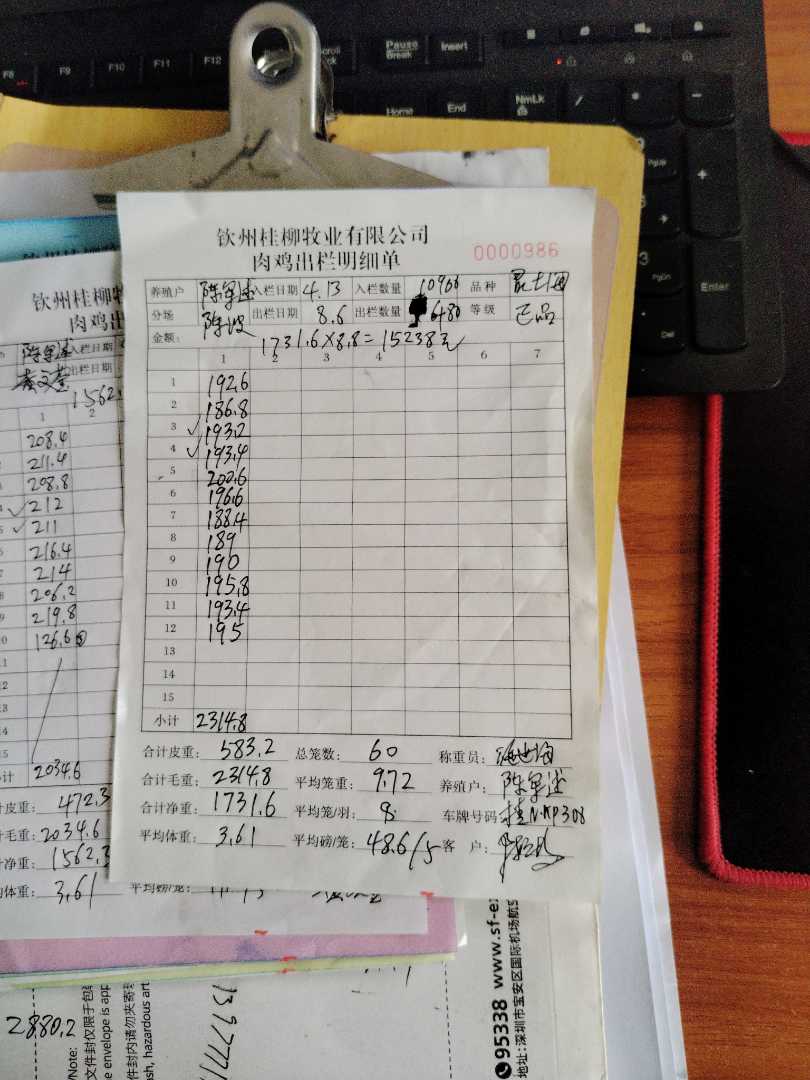 F8 F9 F10 F11 F12 Scroll Lock Pause Break Insert
Home End NmLk / * -
PgUp +
PgDn Enter
Del
钦州桂柳牧业有限公司
肉鸡出栏明细单
0000986
养殖户 陈军述 入栏日期 4.13 入栏数量 10900 品种
分场 陈波 出栏日期 8.6 出栏数量 480 等级 正品
金额: 1731.6×8.8=15238元
1 2 3 4 5 6 7
1 192.6
2 186.8
3 193.2
4 193.4
5 200.6
6 196.6
7 188.4
8 189
9 190
10 195.8
11 193.4
12 195
13
14
15
小计 2314.8
合计皮重: 583.2 总笼数: 60 称重员:
合计毛重: 2314.8 平均笼重: 9.72 养殖户: 陈军述
合计净重: 1731.6 平均笼/羽: 8 车牌号码 桂N·KP308
平均体重: 3.61 平均磅/笼: 48.6/5 客 户:
钦州桂柳牧
肉鸡出
陈军述 入栏日期
出栏日期
1562.
1 2
208.4
211.4
208.8
212
211
216.4
214
206.2
219.8
126.6
计 2034.6
皮重: 472.3
毛重: 2034.6
净重: 1562.3
均体重: 3.61 平均磅/笼:
2880.2
Note:
文件封仅限于包
e envelope is app
件封内请勿夹寄
sh, hazardous art
95338 www.sf-e
地址: 深圳市宝安区国际机场航